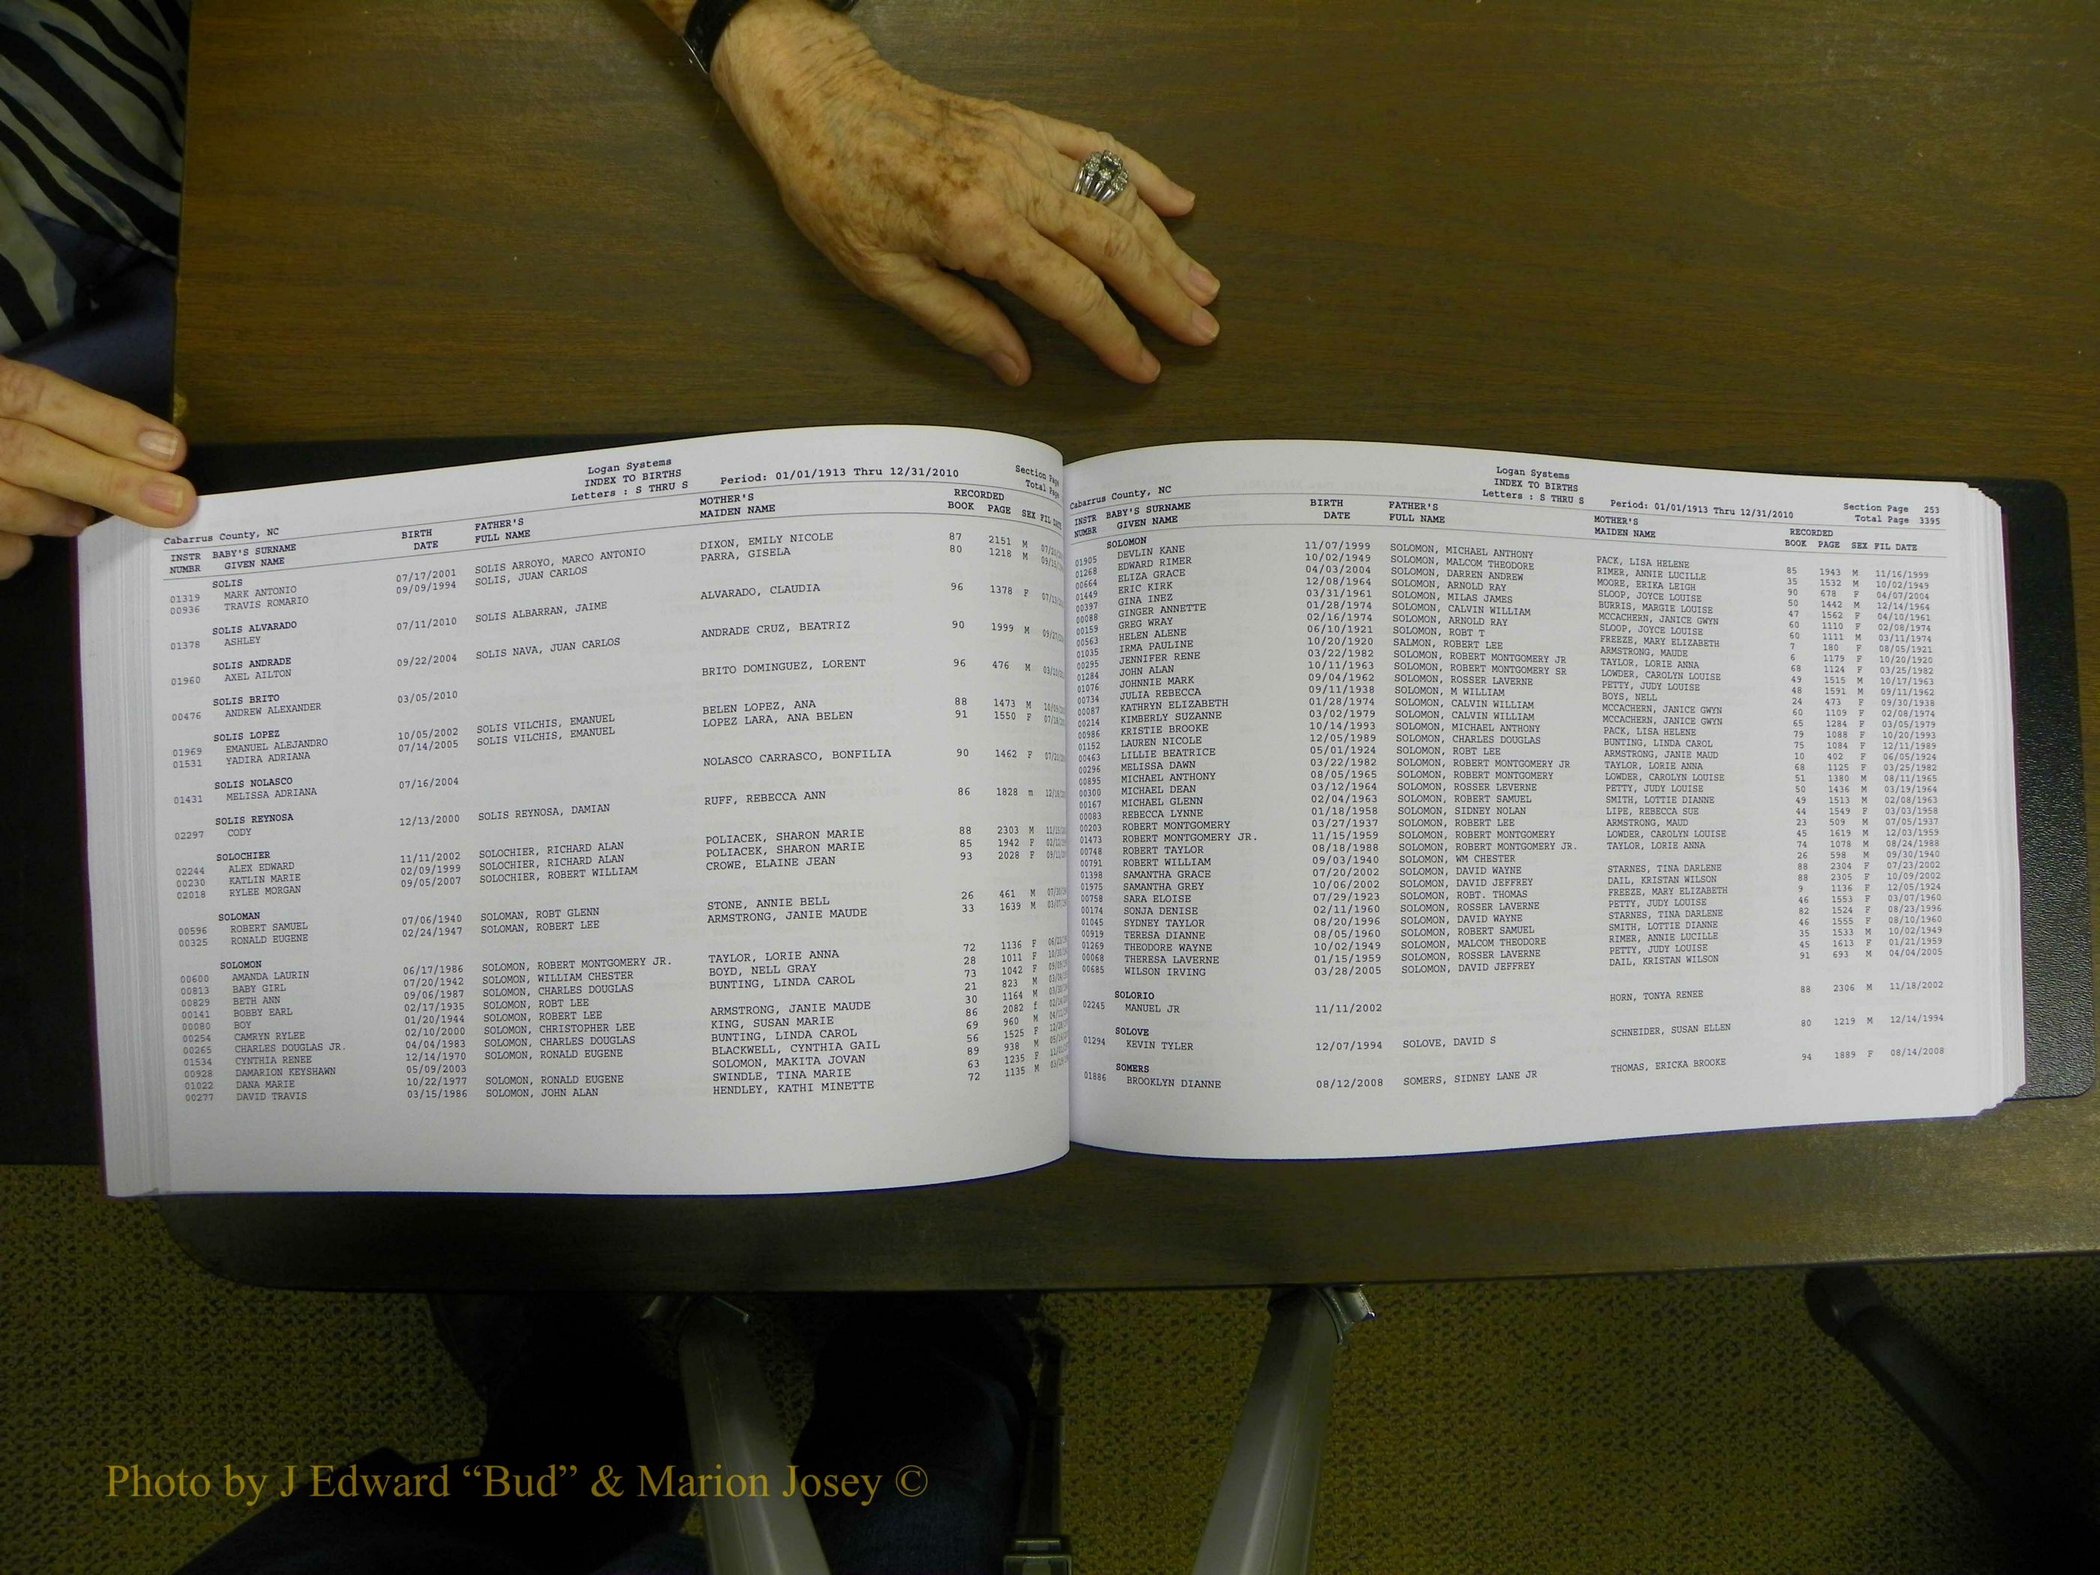 Logan Systems
INDEX TO BIRTHS
Letters : S THRU S Period: 01/01/1913 Thru 12/31/2010
Section Page
Total Page
Cabarrus County, NC
INSTR NUMBR BABY'S SURNAME GIVEN NAME BIRTH DATE FATHER'S FULL NAME MOTHER'S MAIDEN NAME RECORDED BOOK PAGE SEX FIL DATE
SOLIS
01319 MARK ANTONIO 07/17/2001 SOLIS ARROYO, MARCO ANTONIO DIXON, EMILY NICOLE 87 2151 M
00936 TRAVIS ROMARIO 09/09/1994 SOLIS, JUAN CARLOS PARRA, GISELA 80 1218 M
SOLIS ALVARADO
01378 ASHLEY 07/11/2010 SOLIS ALBARRAN, JAIME ALVARADO, CLAUDIA 96 1378 F
SOLIS ANDRADE
01960 AXEL AILTON 09/22/2004 SOLIS NAVA, JUAN CARLOS ANDRADE CRUZ, BEATRIZ 90 1999 M
SOLIS BRITO
00476 ANDREW ALEXANDER 03/05/2010 BRITO DOMINGUEZ, LORENT 96 476 M
SOLIS LOPEZ
01969 EMANUEL ALEJANDRO 10/05/2002 SOLIS VILCHIS, EMANUEL BELEN LOPEZ, ANA 88 1473 M
01531 YADIRA ADRIANA 07/14/2005 SOLIS VILCHIS, EMANUEL LOPEZ LARA, ANA BELEN 91 1550 F
SOLIS NOLASCO
01431 MELISSA ADRIANA 07/16/2004 NOLASCO CARRASCO, BONFILIA 90 1462 F
SOLIS REYNOSA
02297 CODY 12/13/2000 SOLIS REYNOSA, DAMIAN RUFF, REBECCA ANN 86 1828 m
SOLOCHIER
02244 ALEX EDWARD 11/11/2002 SOLOCHIER, RICHARD ALAN POLIACEK, SHARON MARIE 88 2303 M
00230 KATLIN MARIE 02/09/1999 SOLOCHIER, RICHARD ALAN POLIACEK, SHARON MARIE 85 1942 F
02018 RYLEE MORGAN 09/05/2007 SOLOCHIER, ROBERT WILLIAM CROWE, ELAINE JEAN 93 2028 F
SOLOMAN
00596 ROBERT SAMUEL 07/06/1940 SOLOMAN, ROBT GLENN STONE, ANNIE BELL 26 461 M
00325 RONALD EUGENE 02/24/1947 SOLOMAN, ROBERT LEE ARMSTRONG, JANIE MAUDE 33 1639 M
SOLOMON
00600 AMANDA LAURIN 06/17/1986 SOLOMON, ROBERT MONTGOMERY JR. TAYLOR, LORIE ANNA 72 1136 F
00813 BABY GIRL 07/20/1942 SOLOMON, WILLIAM CHESTER BOYD, NELL GRAY 28 1011 F
00829 BETH ANN 09/06/1987 SOLOMON, CHARLES DOUGLAS BUNTING, LINDA CAROL 73 1042 F
00141 BOBBY EARL 02/17/1935 SOLOMON, ROBT LEE 21 823 M
00080 BOY 01/20/1944 SOLOMON, ROBERT LEE ARMSTRONG, JANIE MAUDE 30 1164 M
00254 CAMRYN RYLEE 02/10/2000 SOLOMON, CHRISTOPHER LEE KING, SUSAN MARIE 86 2082 f
00265 CHARLES DOUGLAS JR. 04/04/1983 SOLOMON, CHARLES DOUGLAS BUNTING, LINDA CAROL 69 960 M
01534 CYNTHIA RENEE 12/14/1970 SOLOMON, RONALD EUGENE BLACKWELL, CYNTHIA GAIL 56 1525 F
00928 DAMARION KEYSHAWN 05/09/2003 SOLOMON, MAKITA JOVAN 89 938 M
01022 DANA MARIE 10/22/1977 SOLOMON, RONALD EUGENE SWINDLE, TINA MARIE 63 1235 F
00277 DAVID TRAVIS 03/15/1986 SOLOMON, JOHN ALAN HENDLEY, KATHI MINETTE 72 1135 M
Logan Systems
INDEX TO BIRTHS
Letters : S THRU S Period: 01/01/1913 Thru 12/31/2010
Section Page 253
Total Page 3395
Cabarrus County, NC
INSTR NUMBR BABY'S SURNAME GIVEN NAME BIRTH DATE FATHER'S FULL NAME MOTHER'S MAIDEN NAME RECORDED BOOK PAGE SEX FIL DATE
SOLOMON
01905 DEVLIN KANE 11/07/1999 SOLOMON, MICHAEL ANTHONY PACK, LISA HELENE 85 1943 M 11/16/1999
01268 EDWARD RIMER 10/02/1949 SOLOMON, MALCOM THEODORE RIMER, ANNIE LUCILLE 35 1532 M 10/02/1949
00664 ELIZA GRACE 04/03/2004 SOLOMON, DARREN ANDREW MOORE, ERIKA LEIGH 90 678 F 04/07/2004
01449 ERIC KIRK 12/08/1964 SOLOMON, ARNOLD RAY SLOOP, JOYCE LOUISE 50 1442 M 12/14/1964
00397 GINA INEZ 03/31/1961 SOLOMON, MILAS JAMES BURRIS, MARGIE LOUISE 47 1562 F 04/10/1961
00088 GINGER ANNETTE 01/28/1974 SOLOMON, CALVIN WILLIAM MCCACHERN, JANICE GWYN 60 1110 F 02/08/1974
00159 GREG WRAY 02/16/1974 SOLOMON, ARNOLD RAY SLOOP, JOYCE LOUISE 60 1111 M 03/11/1974
00563 HELEN ALENE 06/10/1921 SOLOMON, ROBT T FREEZE, MARY ELIZABETH 7 180 F 08/05/1921
01035 IRMA PAULINE 10/20/1920 SALMON, ROBERT LEE ARMSTRONG, MAUDE 6 1179 F 10/20/1920
00295 JENNIFER RENE 03/22/1982 SOLOMON, ROBERT MONTGOMERY JR TAYLOR, LORIE ANNA 68 1124 F 03/25/1982
01284 JOHN ALAN 10/11/1963 SOLOMON, ROBERT MONTGOMERY SR LOWDER, CAROLYN LOUISE 49 1515 M 10/17/1963
01076 JOHNNIE MARK 09/04/1962 SOLOMON, ROSSER LAVERNE PETTY, JUDY LOUISE 48 1591 M 09/11/1962
00734 JULIA REBECCA 09/11/1938 SOLOMON, M WILLIAM BOYS, NELL 24 473 F 09/30/1938
00087 KATHRYN ELIZABETH 01/28/1974 SOLOMON, CALVIN WILLIAM MCCACHERN, JANICE GWYN 60 1109 F 02/08/1974
00214 KIMBERLY SUZANNE 03/02/1979 SOLOMON, CALVIN WILLIAM MCCACHERN, JANICE GWYN 65 1284 F 03/05/1979
00986 KRISTIE BROOKE 10/14/1993 SOLOMON, MICHAEL ANTHONY PACK, LISA HELENE 79 1088 F 10/20/1993
01152 LAUREN NICOLE 12/05/1989 SOLOMON, CHARLES DOUGLAS BUNTING, LINDA CAROL 75 1084 F 12/11/1989
00463 LILLIE BEATRICE 05/01/1924 SOLOMON, ROBT LEE ARMSTRONG, JANIE MAUD 10 402 F 06/05/1924
00296 MELISSA DAWN 03/22/1982 SOLOMON, ROBERT MONTGOMERY JR TAYLOR, LORIE ANNA 68 1125 F 03/25/1982
00895 MICHAEL ANTHONY 08/05/1965 SOLOMON, ROBERT MONTGOMERY LOWDER, CAROLYN LOUISE 51 1380 M 08/11/1965
00300 MICHAEL DEAN 03/12/1964 SOLOMON, ROSSER LEVERNE PETTY, JUDY LOUISE 50 1436 M 03/19/1964
00167 MICHAEL GLENN 02/04/1963 SOLOMON, ROBERT SAMUEL SMITH, LOTTIE DIANNE 49 1513 M 02/08/1963
00083 REBECCA LYNNE 01/18/1958 SOLOMON, SIDNEY NOLAN LIPE, REBECCA SUE 44 1549 F 03/03/1958
00203 ROBERT MONTGOMERY 03/27/1937 SOLOMON, ROBERT LEE ARMSTRONG, MAUD 23 509 M 07/05/1937
01473 ROBERT MONTGOMERY JR. 11/15/1959 SOLOMON, ROBERT MONTGOMERY LOWDER, CAROLYN LOUISE 45 1619 M 12/03/1959
00748 ROBERT TAYLOR 08/18/1988 SOLOMON, ROBERT MONTGOMERY JR. TAYLOR, LORIE ANNA 74 1078 M 08/24/1988
00791 ROBERT WILLIAM 09/03/1940 SOLOMON, WM CHESTER 26 598 M 09/30/1940
01398 SAMANTHA GRACE 07/20/2002 SOLOMON, DAVID WAYNE STARNES, TINA DARLENE 88 2304 F 07/23/2002
01975 SAMANTHA GREY 10/06/2002 SOLOMON, DAVID JEFFREY DAIL, KRISTAN WILSON 88 2305 F 10/09/2002
00758 SARA ELOISE 07/29/1923 SOLOMON, ROBT. THOMAS FREEZE, MARY ELIZABETH 9 1136 F 12/05/1924
00174 SONJA DENISE 02/11/1960 SOLOMON, ROSSER LAVERNE PETTY, JUDY LOUISE 46 1553 F 03/07/1960
01045 SYDNEY TAYLOR 08/20/1996 SOLOMON, DAVID WAYNE STARNES, TINA DARLENE 82 1524 F 08/23/1996
00919 TERESA DIANNE 08/05/1960 SOLOMON, ROBERT SAMUEL SMITH, LOTTIE DIANNE 46 1555 F 08/10/1960
01269 THEODORE WAYNE 10/02/1949 SOLOMON, MALCOM THEODORE RIMER, ANNIE LUCILLE 35 1533 M 10/02/1949
00068 THERESA LAVERNE 01/15/1959 SOLOMON, ROSSER LAVERNE PETTY, JUDY LOUISE 45 1613 F 01/21/1959
00685 WILSON IRVING 03/28/2005 SOLOMON, DAVID JEFFREY DAIL, KRISTAN WILSON 91 693 M 04/04/2005
SOLORIO
02245 MANUEL JR 11/11/2002 HORN, TONYA RENEE 88 2306 M 11/18/2002
SOLOVE
01294 KEVIN TYLER 12/07/1994 SOLOVE, DAVID S SCHNEIDER, SUSAN ELLEN 80 1219 M 12/14/1994
SOMERS
01886 BROOKLYN DIANNE 08/12/2008 SOMERS, SIDNEY LANE JR THOMAS, ERICKA BROOKE 94 1889 F 08/14/2008
Photo by J Edward “Bud” & Marion Josey ©